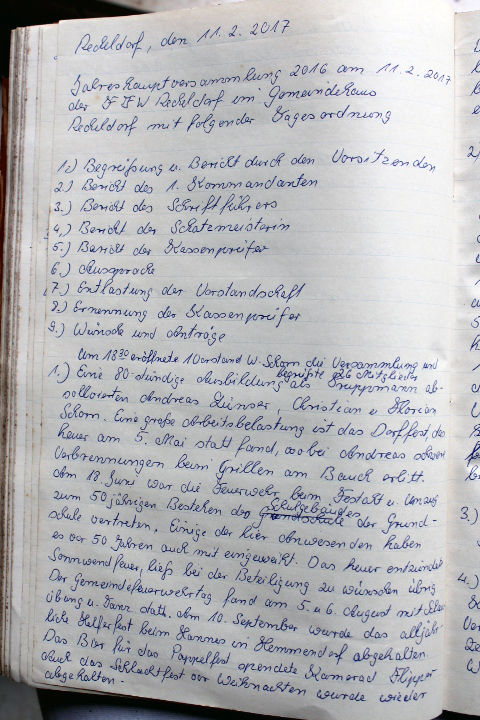 Reckldorf, den 11.2.2017
Jahreshauptversammlung 2016 am 11.2.2017
der FFW Reckldorf im Gemeindehaus
Reckldorf mit folgender Tagesordnung
1.) Begrüßung u. Bericht durch den Vorsitzenden
2.) Bericht des 1. Kommandanten
3.) Bericht des Schriftführers
4.) Bericht der Schatzmeisterin
5.) Bericht der Kassenprüfer
6.) Aussprache
7.) Entlastung der Vorstandschaft
8.) Ernennung der Kassenprüfer
9.) Wünsche und Anträge
Um 18³⁰ eröffnete 1 Vorstand W. Schorn die Versammlung und
begrüßte 26 Mitglieder
1.) Eine 80-stündige Ausbildung als Truppmann ab-
solvierten Andreas Christian u. Florian
Schorn. Eine große Arbeitsbelastung ist das Dorffest, das
heuer am 5. Mai statt fand, wo bei Andreas schwere
Verbrennungen beim Grillen am Bauch erlitt.
Am 18. Juni war die Feuerwehr beim Festakt u. Umzug
zum 50 jährigen Bestehen des Schulgebäudes
der Grund-
schule vertreten. Einige der hier Anwesenden haben
es vor 50 Jahren auch mit eingeweiht. Das heuer entzündete
Sonnwendfeuer, ließ bei der Beteiligung zu wünschen übrig
Der Gemeindefeuerwehrtag fand am 5. u. 6. August mit Schau
übung u. Tanz statt. Am 10. September wurde das alljähr-
liche Helferfest beim Hannes in Hemmendorf abgehalten.
Das Bier für das Pappelfest spendete Kamerad Flipper
Auch das Schlachtfest vor Weihnachten wurde wieder
abgehalten.-